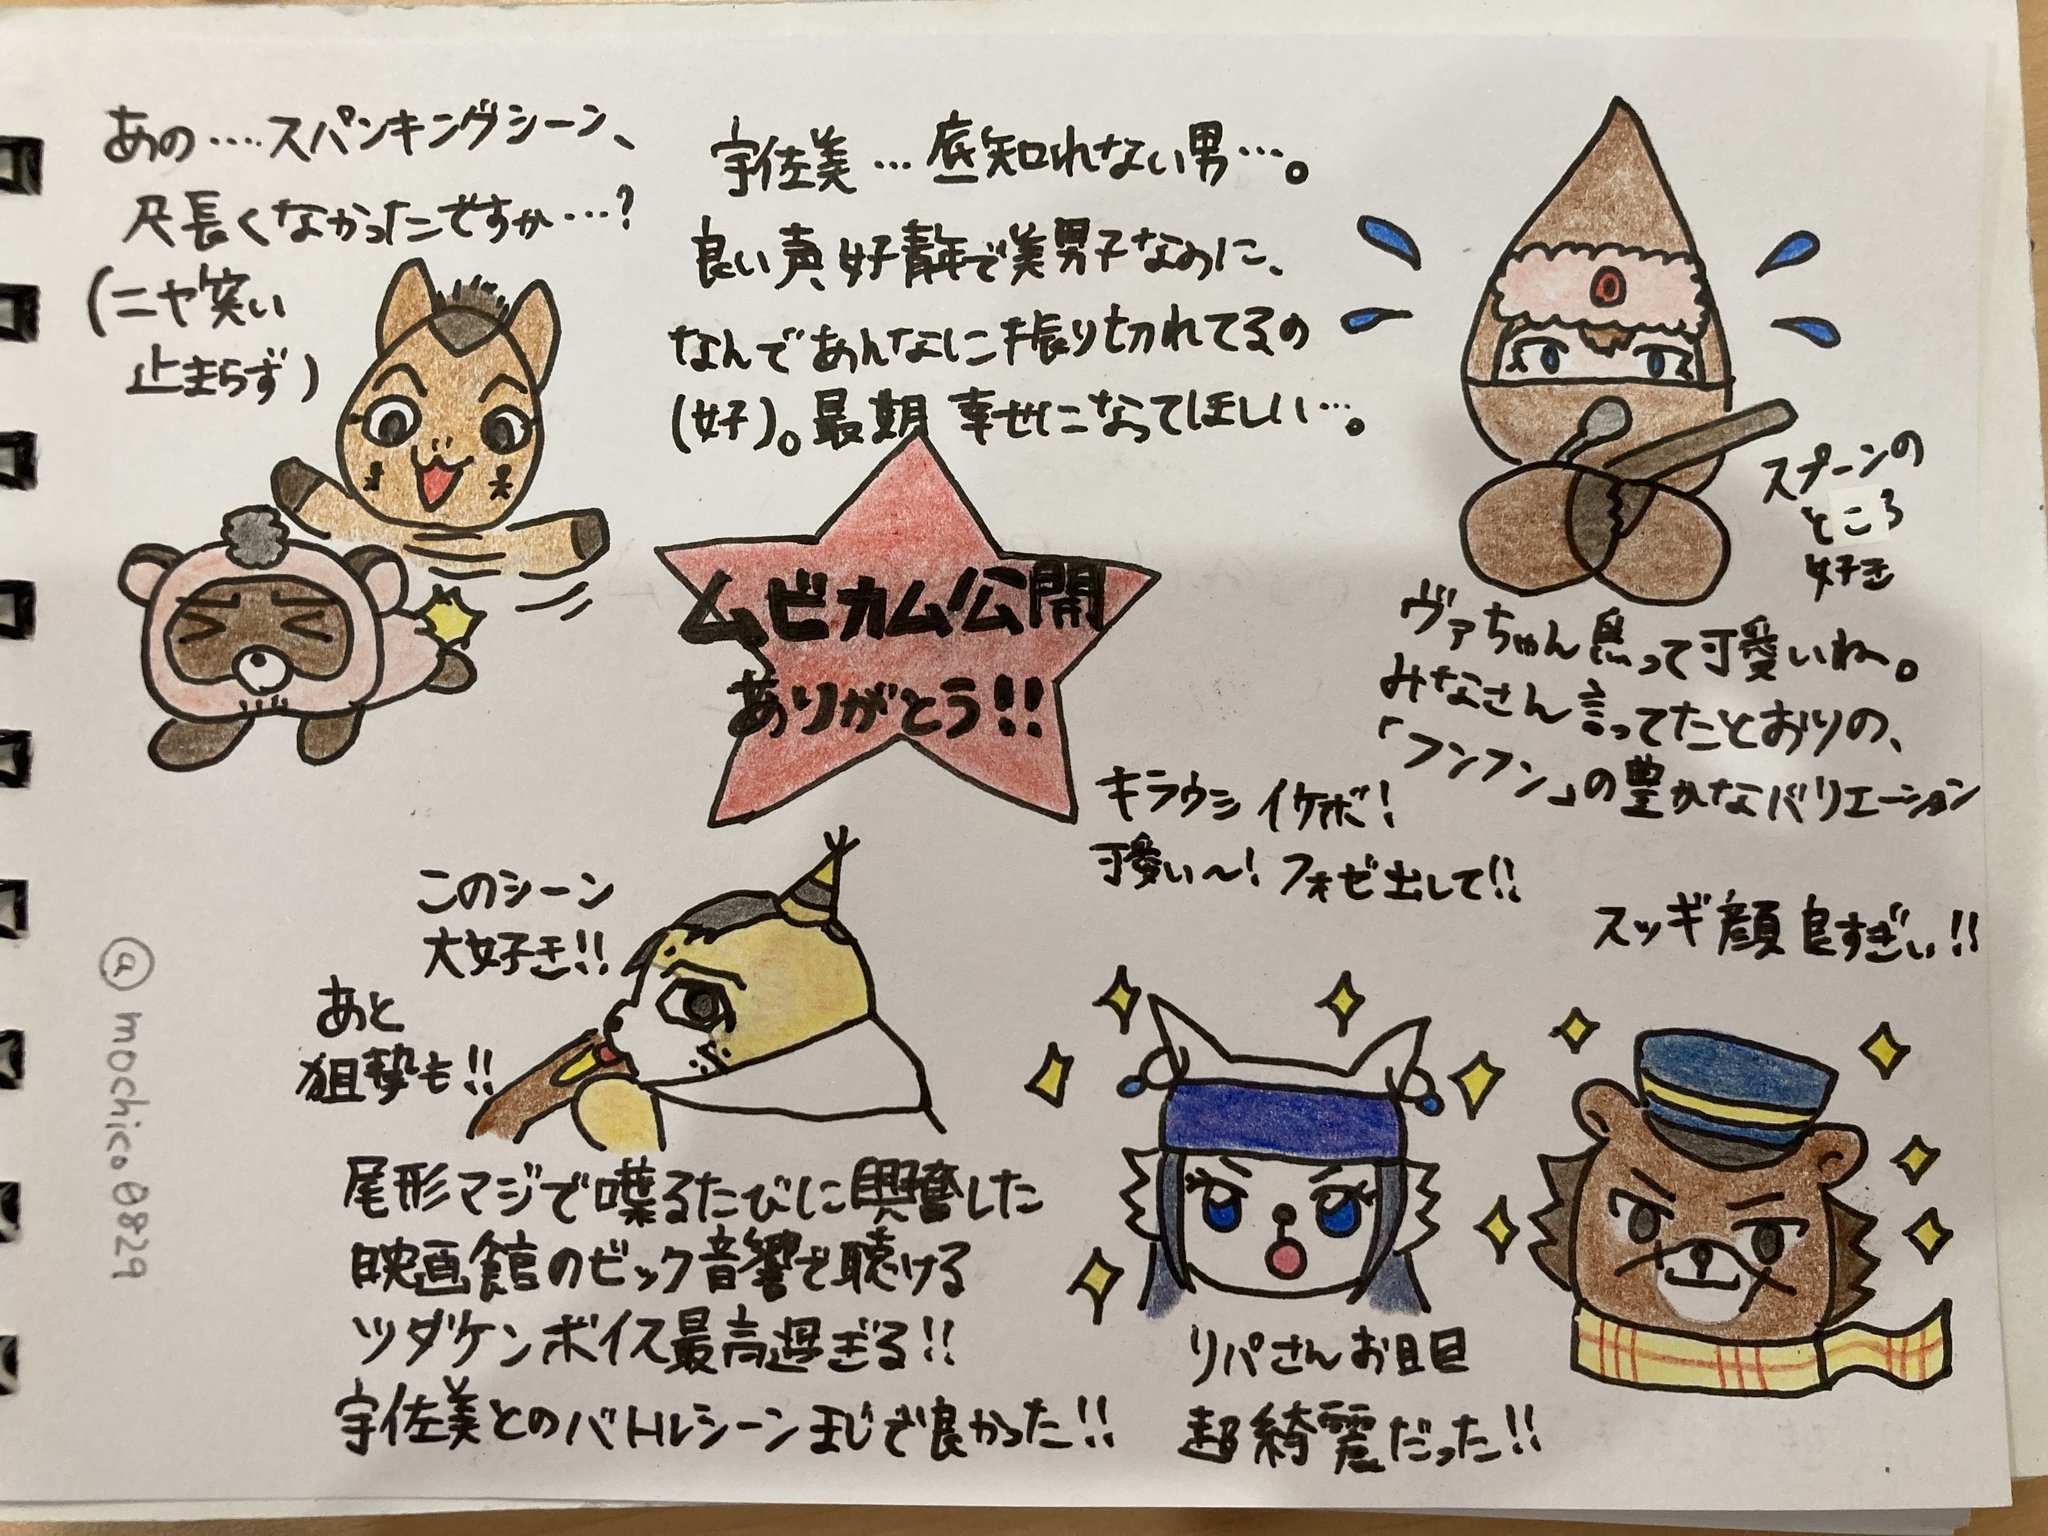 あの‥‥スパンキングシーン、
尺長くなかったですか‥‥?
(ニヤ笑い
止まらず)
宇佐美…底知れない男…。
良い声、好青年で美男子なのに、
なんであんなに振り切れてるの
(好)。最期 幸せになってほしい…。
スプーンの
ところ
好き
ヴァちゃん焦って可愛いね。
みなさん言ってたとおりの、
「フンフン」の豊かなバリエーション
ムビカム公開
ありがとう!!
キラウシ イケボ!
可愛い〜! フォゼ出して!!
スッギ顔良すぎぃ!!
このシーン
大好き!!
あと
狙撃も!!
尾形マジで喋るたびに興奮した
映画館のビック音響で聴ける
ツダケンボイス最高過ぎる!!
宇佐美とのバトルシーンまじで良かった!!
リパさんお目目
超綺麗だった!!
@mochico0829